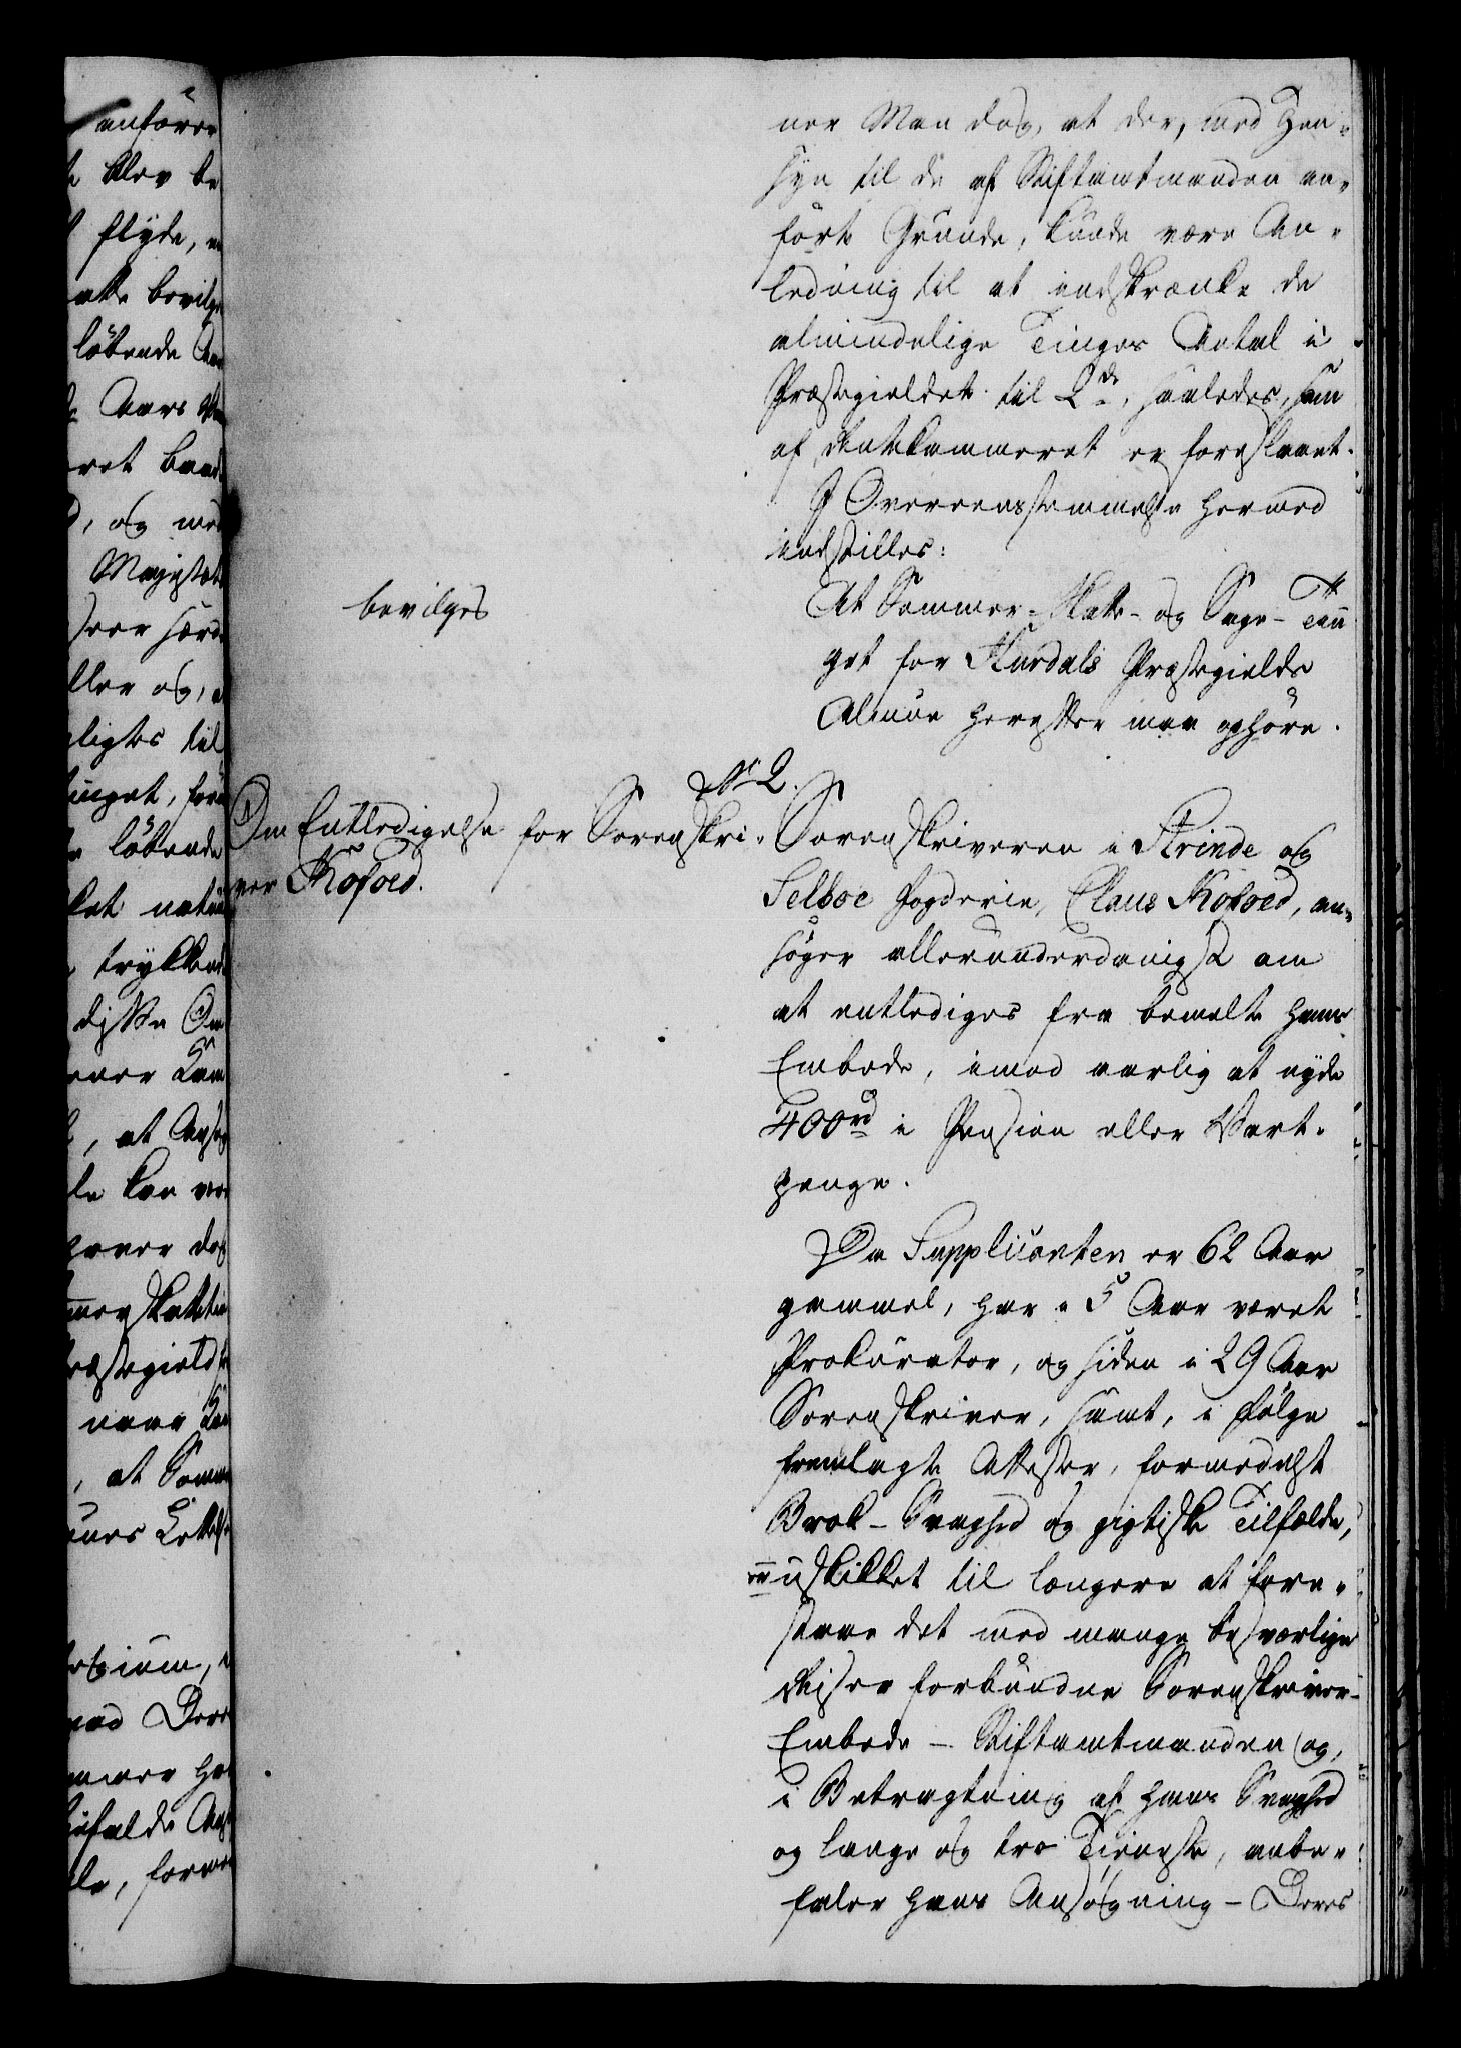 ner Man dog, at der, med Hen-
syn til de af Stiftamtmanden an-
førte Grunde, kunde være An-
ledning til at indskrænke de
almindelige Tinges Antal i
Præstegieldet til 2de, saaledes, som
af Rentekammeret er foreslaaet.
I Overeensstemmelse hermed
indstilles:
bevilges
At Sommer-Skatte- og Sage-Tin
get for Hurdals Præstegields
Almue herefter maa ophøre.
No 2.
Om Entledigelse for Sorenskri-
ver Kofoed.
Sorenskriveren i Strinde og
Selboe Fogderie, Claus Kofoed, an-
søger allerunderdanigst om
at entlediges fra bemelte hans
Embede, imod aarlig at nyde
400 rd i Pension eller Vart-
penge.
Da Supplicanten er 62 Aar
gammel, har i 5 Aar været
Prokurator, og siden i 29 Aar
Sorenskriver, samt, i Følge
fremlagte Attester, formedelst
Brok-Svaghed og gigtiske Tilfælde,
er uskikket til længere at fore-
staae det med mange besværlige
Reiser forbundne Sorenskriver-
Embede - Stiftamtmanden og,
i Betragtning af hans Svaghed
og lange og tro Tieneste, anbe-
faler hans Ansøgning - Deres
anfører
blev be
flyde,
løbende
Aars
og med
til
løbende
at